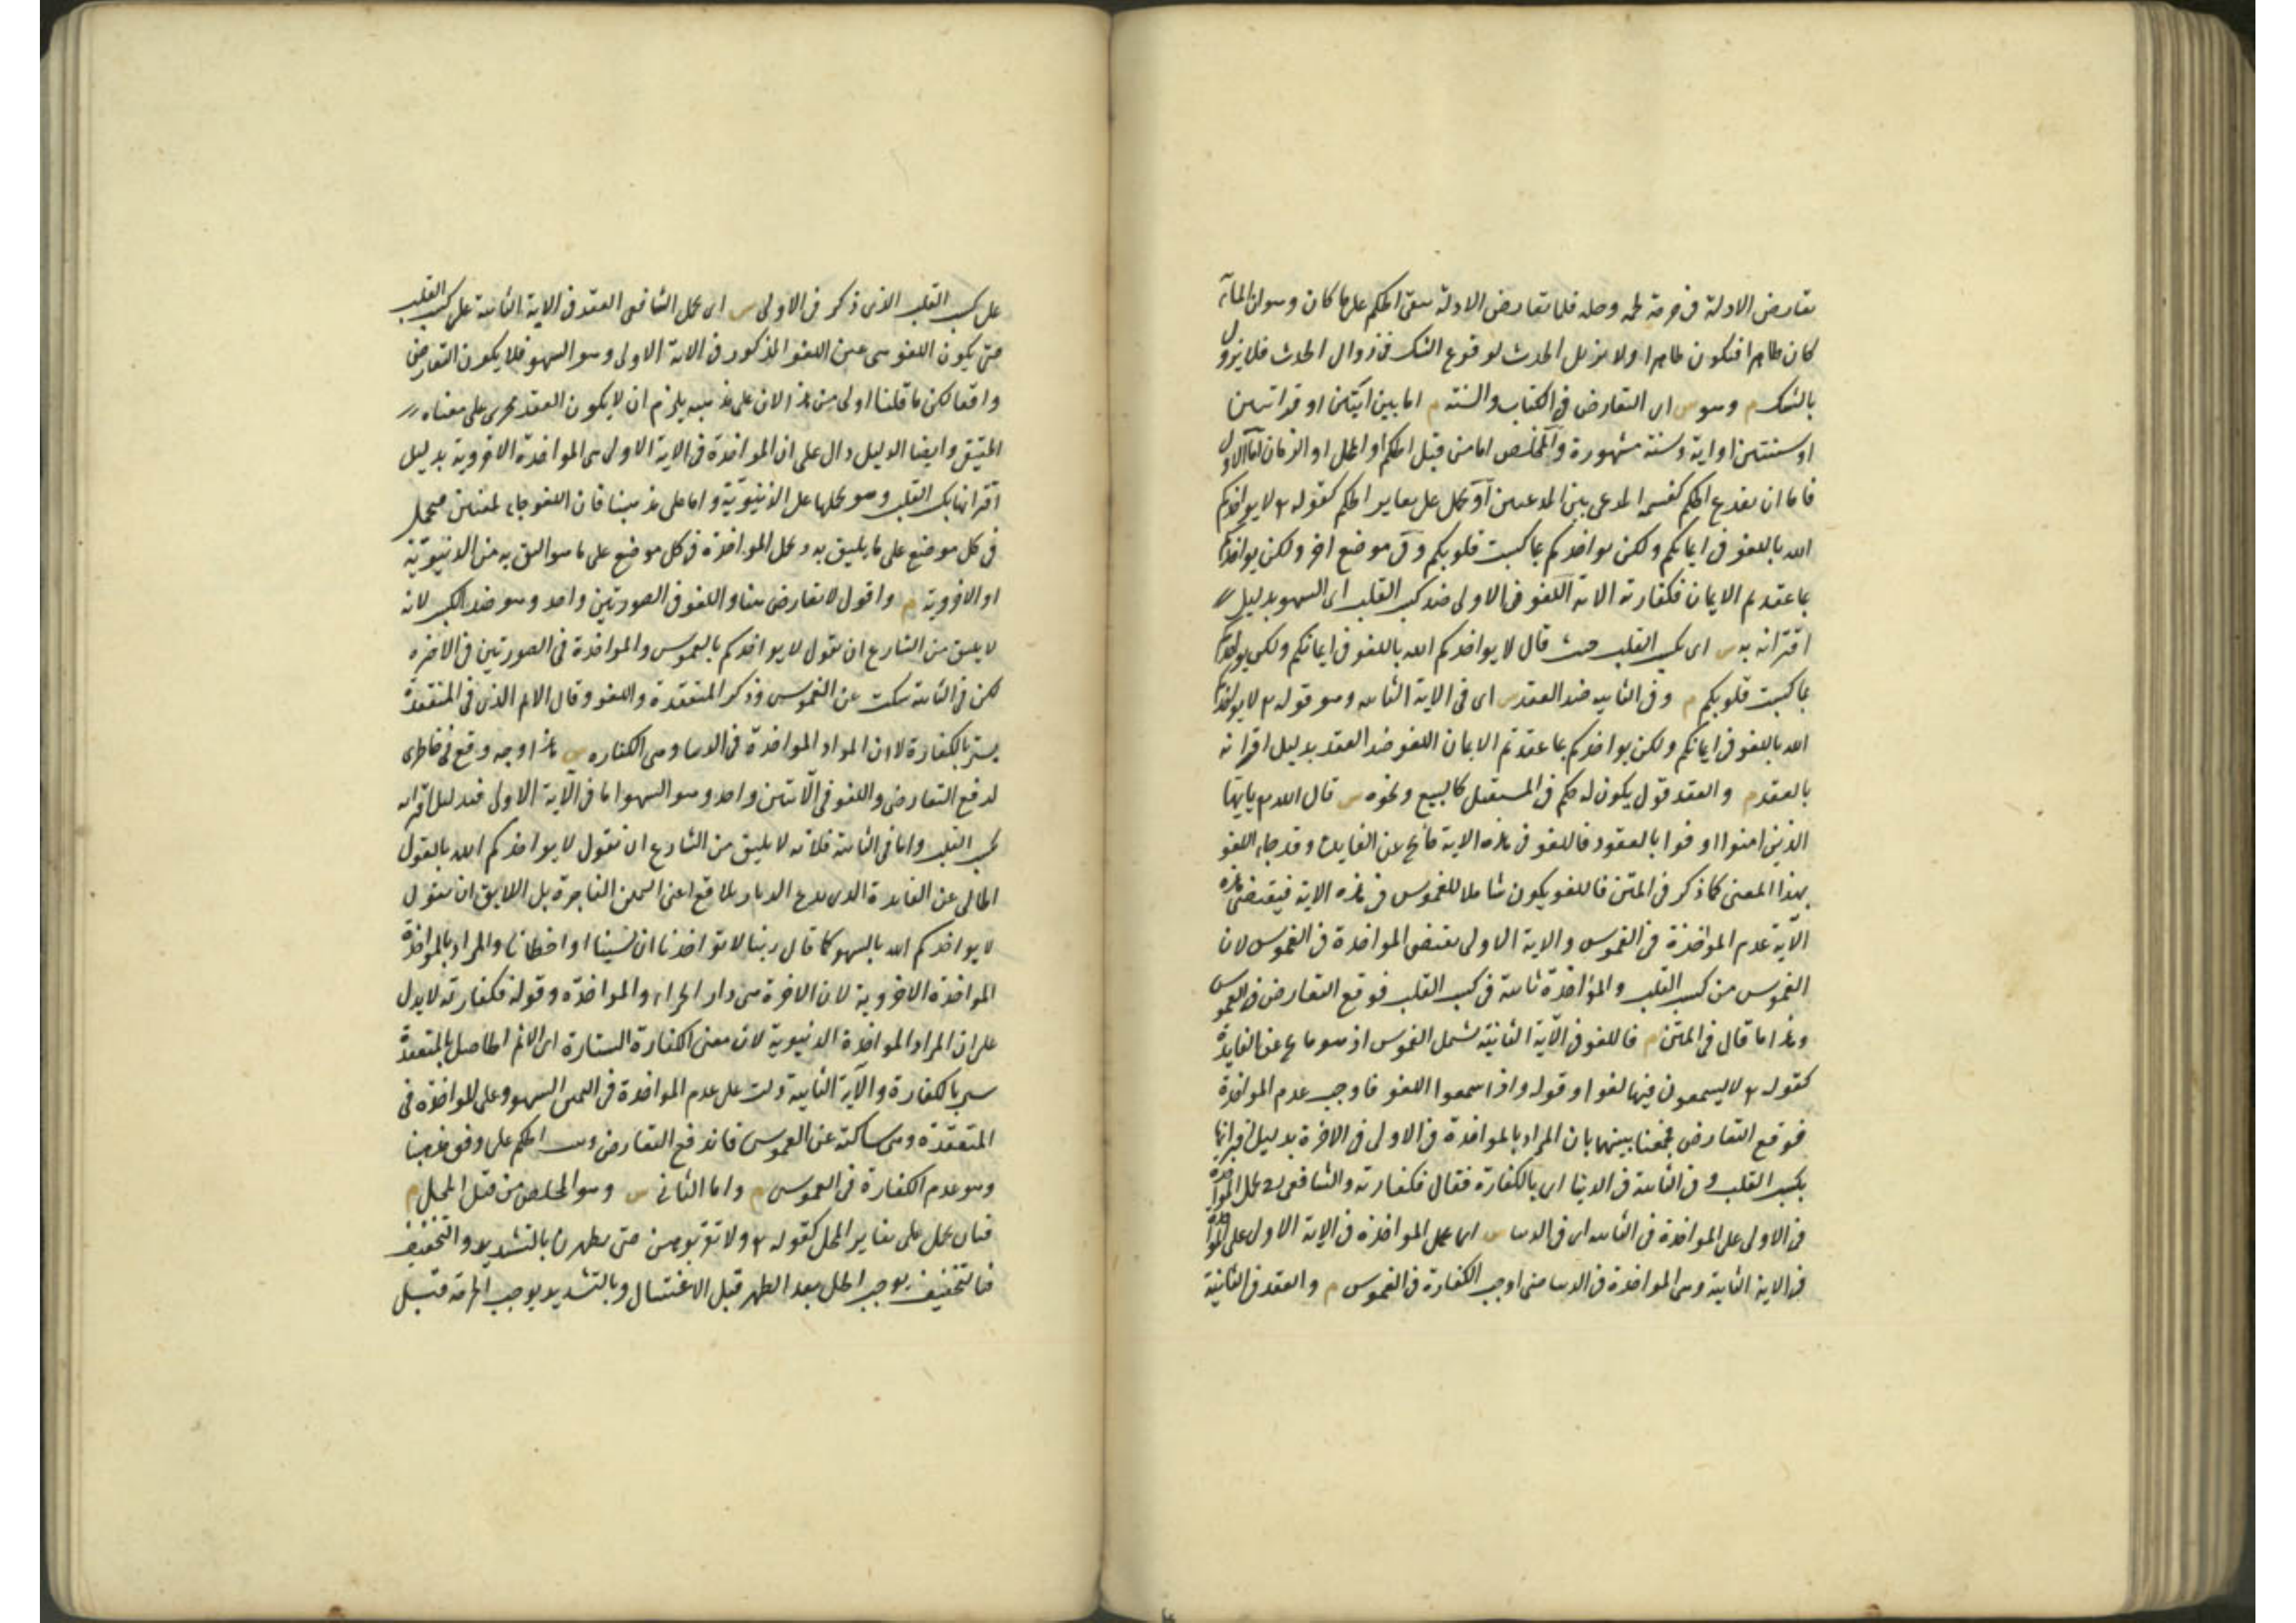 تعارض الادلة فى حرمة لحمه وحله فلما تعارض الادلة يبقى الحكم على ما كان وهو ان الماء
كان طاهرا فيكون طاهرا ولا يزيل الحدث لوقوع الشك فى زوال الحدث فلا يزول
بالشك م وهو س اى التعارض فى الكتاب والسنة م اما بين آيتين او قرائتين
او سنتين او اية وسنة مشهورة والمخلص اما من قبل الحكم او المحل او الزمان اما الاول
فاما ان يوزع الحكم كقسمة المدعى بين المدعيين او يحمل على تغاير الحكم كقوله تع لا يواخذكم
الله باللغو فى ايمانكم ولكن يواخذكم بما كسبت قلوبكم وفى موضع اخر ولكن يواخذكم
بما عقدتم الايمان فكفارته الاية اللغو فى الاولى ضد كسب القلب اى السهو بدليل
اقترانه به س اى بكسب القلب حيث قال لا يواخذكم الله باللغو فى ايمانكم ولكن يواخذكم
بما كسبت قلوبكم م وفى الثانيه ضد العقد س اى فى الاية الثانيه وهو قوله تع لا يواخذكم
الله باللغو فى ايمانكم ولكن يواخذكم بما عقدتم الايمان اللغو ضد العقد بدليل اقترانه
بالعقد م والعقد قول يكون له حكم فى المستقبل كالبيع ونحوه س قال الله تع يايها
الذين امنوا اوفوا بالعقود فاللغو فى هذه الاية ما يخ عن الفايدة وقد جاء اللغو
بهذا المعنى كما ذكر فى المتن فاللغو يكون شاملا للغموس فى هذه الاية فيقتضى هذه
الآية عدم المواخذة فى الغموس والاية الاولى تقتضى المواخذة فى الغموس لان
الغموس من كسب القلب والمؤاخذة ثابتة فى كسب القلب فوقع التعارض فى الغموس
وهذا ما قال فى المتن م فاللغو فى الآية الثانية تشمل الغموس اذ هو ما يخ عن الفايدة
كقوله تع لا يسمعون فيها لغوا وقوله واذا سمعوا اللغو فاوجب عدم المواخذة
فوقع التعارض فجمعنا بينهما بان المراد بالمواخذة فى الاولى فى الاخرة بدليل اقترانها
بكسب القلب وفى الثانية فى الدنيا اى بالكفارة فقال فكفارته والشافعى رح يحمل المواخذة
فى الاولى على المواخذة فى الثانيه اى فى الدنيا س اى يحمل المواخذة فى الاية الاولى على المواخذة
فى الاية الثانية وهى المواخذة فى الدنيا حتى اوجب الكفارة فى الغموس م والعقد فى الثانية
على كسب القلب الذى ذكر فى الاولى س اى يحمل الشافعى العقد فى الاية الثانية على كسب القلب
حتى يكون اللغو هى عين اللغو المذكور فى الاية الاولى وهو السهو فلا يكون التعارض
واقعا لكن ما قلنا اولى من هذا لان على مذهبه يلزم ان لا يكون العقد مجرى على معناه
الحقيقى وايضا الدليل دال على ان المواخذة فى الاية الاولى هى المواخذة الاخروية بدليل
اقترانها بكسب القلب وهو يحملها على الدنيويّة واما على مذهبنا فان اللغو جاء لمعنيين فيحمل
فى كل موضع على ما يليق به ويحمل المواخذة فى كل موضع على ما هو اليق به من الدنيويّة
او الاخروية م واقول لا تعارض هنا واللغو فى الصورتين واحد وهو ضد الكسب لانه
لا يليق من الشارع ان يقول لا يواخذكم بالغموس والمواخذة فى الصورتين فى الاخرة
لكن فى الثانية سكت عن الغموس وذكر المنعقدة واللغو وقال الاثم الذى فى المنعقدة
يستر بالكفارة لا ان المراد المواخذة فى الدنيا وهى الكفاره س هذا وجه وقع فى خاطرى
لدفع التعارض واللغو فى الآيتين واحد وهو السهو اما فى الآية الاولى فبدليل اقترانه
بكسب القلب واما فى الثانية فلانه لا يليق من الشارع ان يقول لا يواخذكم الله بالقول
الخالى عن الفايدة الذى يدع الديار بلاقع اعنى اليمين الفاجرة بل اللايق ان يقول
لا يواخذكم الله بالسهو كما قال ربنا لا تؤاخذنا ان نسينا او اخطانا والمراد بالمواخذة
المواخذة الاخروية لان الاخرة هى دار الجزاء والمواخذة وقوله فكفارته لا يدل
على ان المراد المواخذة الدنيوية لان معنى الكفارة الستارة اى الاثم الحاصل بالمنعقدة
يستر بالكفارة والآية الثانية دلت على عدم المواخذة فى اليمين السهو وعلى المواخذة فى
المنعقدة وهى ساكتة عن الغموس فاندفع التعارض وثبت الحكم على وفق مذهبنا
وهو عدم الكفارة فى الغموس م واما الثانى س وهو المخلص من قبل المحل م
فبان يحمل على تغاير المحل كقوله تع ولا تقربوهن حتى يطهرن بالتشديد والتخفيف
فبالتخفيف يوجب الحل بعد الطهر قبل الاغتسال وبالتشديد يوجب الحرمة قبل